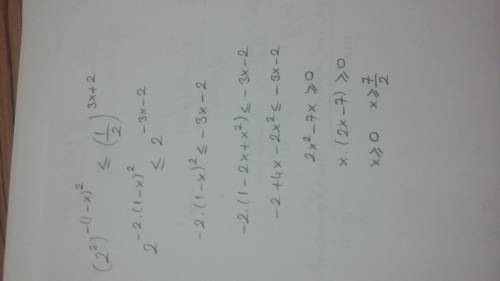 (2²)^-(1-x)² ≤ (1/2)^3x+2
2^-2·(1-x)² ≤ 2^-3x-2
-2·(1-x)² ≤ -3x-2
-2·(1-2x+x²) ≤ -3x-2
-2+4x-2x² ≤ -3x-2
2x²-7x ≥ 0
x·(2x-7) ≥ 0
x ≥ 0 x ≥ 7/2